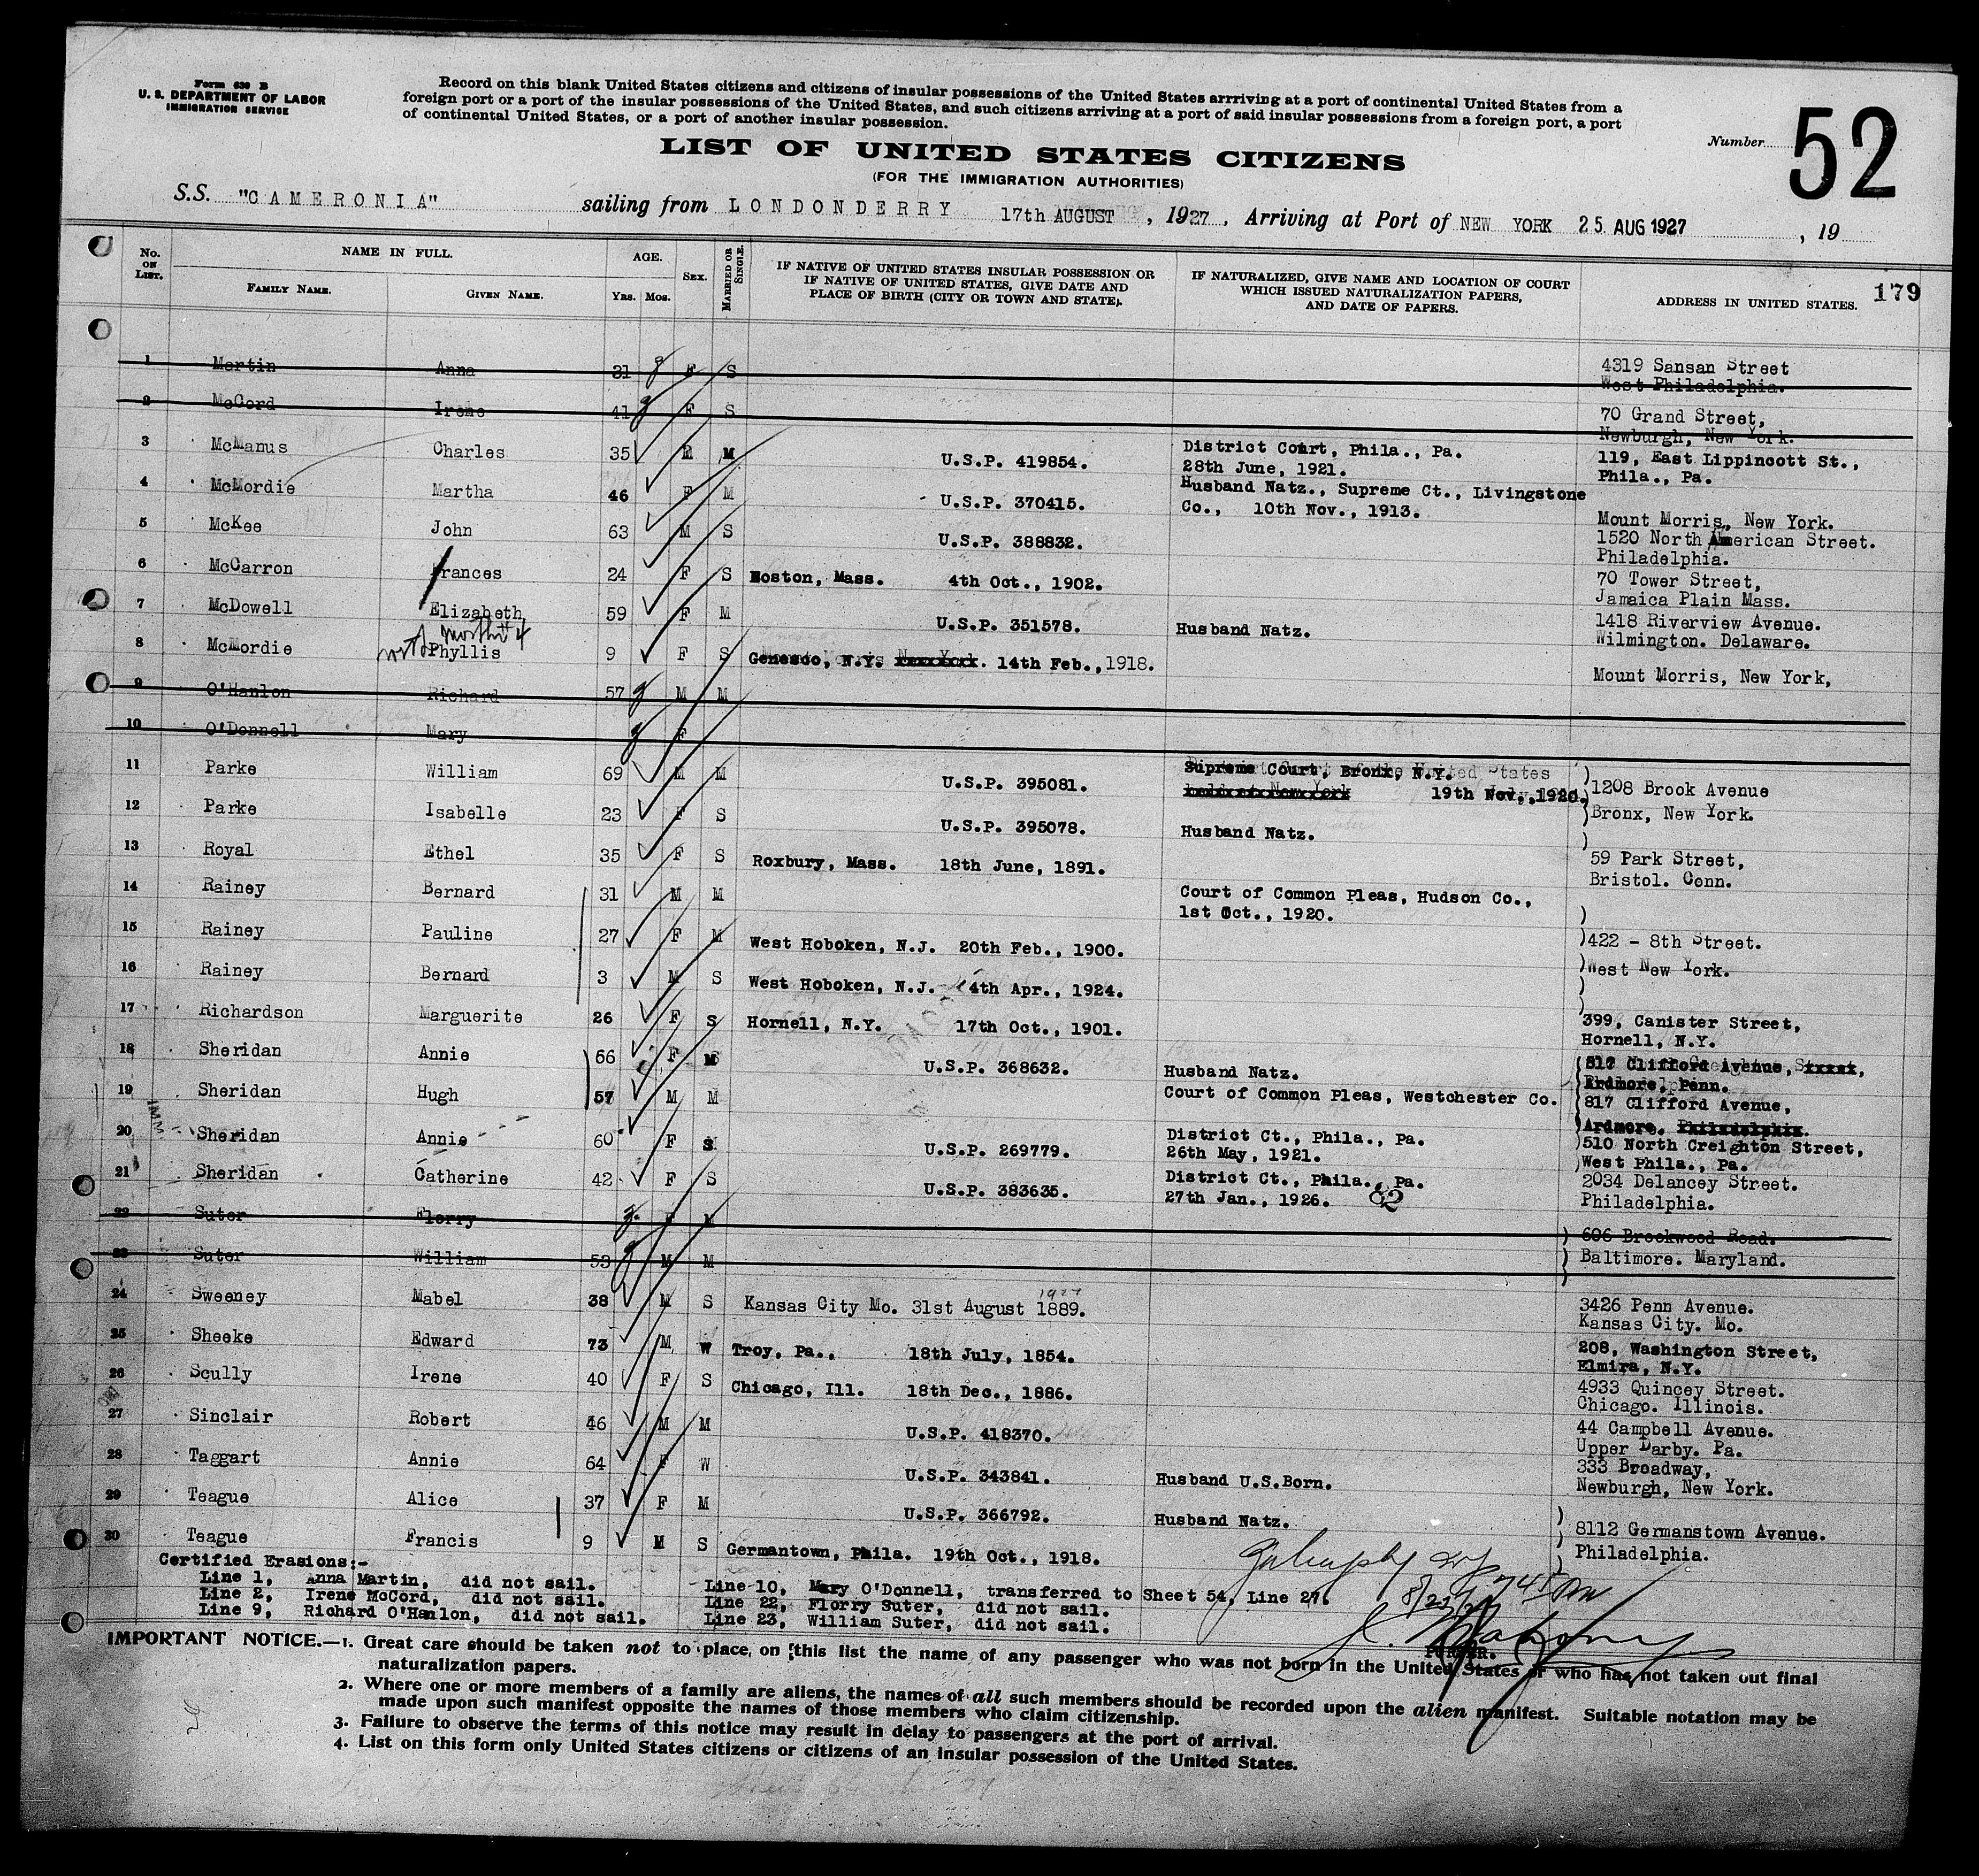 Form 630 B
U. S. DEPARTMENT OF LABOR
IMMIGRATION SERVICE
Record on this blank United States citizens and citizens of insular possessions of the United States arrriving at a port of continental United States from a
foreign port or a port of the insular possessions of the United States, and such citizens arriving at a port of said insular possessions from a foreign port, a port
of continental United States, or a port of another insular possession.
LIST OF UNITED STATES CITIZENS
(FOR THE IMMIGRATION AUTHORITIES)
Number 52
S.S. "CAMERONIA" sailing from LONDONDERRY 17th AUGUST, 1927, Arriving at Port of NEW YORK 25 AUG 1927, 19
179
No. ON LIST. NAME IN FULL. FAMILY NAME. GIVEN NAME. AGE. Yrs. Mos. SEX. MARRIED OR SINGLE.
IF NATIVE OF UNITED STATES INSULAR POSSESSION OR
IF NATIVE OF UNITED STATES, GIVE DATE AND
PLACE OF BIRTH (CITY OR TOWN AND STATE).
IF NATURALIZED, GIVE NAME AND LOCATION OF COURT
WHICH ISSUED NATURALIZATION PAPERS,
AND DATE OF PAPERS.
ADDRESS IN UNITED STATES.
1 Martin Anna 31 F S 4319 Sansan Street
West Philadelphia.
2 McCord Irene 41 F S 70 Grand Street,
Newburgh, New York.
3 McManus Charles 35 M M U.S.P. 419854. District Court, Phila., Pa. 119, East Lippincott St.,
28th June, 1921. Phila., Pa.
4 McMordie Martha 46 F M U.S.P. 370415. Husband Natz., Supreme Ct., Livingstone
Co., 10th Nov., 1913. Mount Morris, New York.
5 McKee John 63 M S U.S.P. 388832. 1520 North American Street.
Philadelphia.
6 McCarron Frances 24 F S Boston, Mass. 4th Oct., 1902. 70 Tower Street,
Jamaica Plain Mass.
7 McDowell Elizabeth 59 F M U.S.P. 351578. Husband Natz. 1418 Riverview Avenue.
Wilmington. Delaware.
8 McMordie Phyllis 9 F S Genesco, N.Y. 14th Feb.,1918. Mount Morris, New York,
9 O'Hanlon Richard 57 M M
10 O'Donnell Mary F
11 Parke William 69 M M U.S.P. 395081. Supreme Court, Bronx, N.Y. 1208 Brook Avenue
19th Nov,,1920. Bronx, New York.
12 Parke Isabelle 23 F S U.S.P. 395078. Husband Natz.
13 Royal Ethel 35 F S Roxbury, Mass. 18th June, 1891. 59 Park Street,
Bristol. Conn.
14 Rainey Bernard 31 M M Court of Common Pleas, Hudson Co.,
1st Oct., 1920.
15 Rainey Pauline 27 F M West Hoboken, N.J. 20th Feb., 1900. 422 - 8th Street.
16 Rainey Bernard 3 M S West Hoboken, N.J. 4th Apr., 1924. West New York.
17 Richardson Marguerite 26 F S Hornell, N.Y. 17th Oct., 1901. 399, Canister Street,
Hornell, N.Y.
18 Sheridan Annie 66 F M U.S.P. 368632. Husband Natz. 817 Clifford Avenue,
Ardmore, Penn.
19 Sheridan Hugh 57 M M Court of Common Pleas, Westchester Co. 817 Clifford Avenue,
Ardmore. Philadelphia.
20 Sheridan Annie 60 F S U.S.P. 269779. District Ct., Phila., Pa. 510 North Creighton Street,
26th May, 1921. West Phila., Pa.
21 Sheridan Catherine 42 F S U.S.P. 383635. District Ct., Phila., Pa. 2034 Delancey Street.
27th Jan., 1926. 82 Philadelphia.
22 Suter Florry F M 606 Brookwood Road.
23 Suter William 53 M M Baltimore. Maryland.
24 Sweeney Mabel 38 M S Kansas City Mo. 31st August 1889. 1927 3426 Penn Avenue.
Kansas City. Mo.
25 Sheeke Edward 73 M W Troy, Pa., 18th July, 1854. 208, Washington Street,
Elmira, N.Y.
26 Scully Irene 40 F S Chicago, Ill. 18th Dec., 1886. 4933 Quincey Street.
Chicago. Illinois.
27 Sinclair Robert 46 M M U.S.P. 418370. 44 Campbell Avenue.
Upper Darby. Pa.
28 Taggart Annie 64 F W U.S.P. 343841. Husband U.S.Born. 333 Broadway,
Newburgh, New York.
29 Teague Alice 37 F M U.S.P. 366792. Husband Natz. 8112 Germanstown Avenue.
30 Teague Francis 9 M S Germantown, Phila. 19th Oct., 1918. Philadelphia.
Certified Erasions:-
Line 1, Anna Martin, did not sail. Line 10, Mary O'Donnell, transferred to Sheet 54, Line 27.
Line 2, Irene McCord, did not sail. Line 22, Florry Suter, did not sail.
Line 9, Richard O'Hanlon, did not sail. Line 23, William Suter, did not sail.
PURSER.
IMPORTANT NOTICE.—1. Great care should be taken not to place, on this list the name of any passenger who was not born in the United States or who has not taken out final
naturalization papers.
2. Where one or more members of a family are aliens, the names of all such members should be recorded upon the alien manifest. Suitable notation may be
made upon such manifest opposite the names of those members who claim citizenship.
3. Failure to observe the terms of this notice may result in delay to passengers at the port of arrival.
4. List on this form only United States citizens or citizens of an insular possession of the United States.